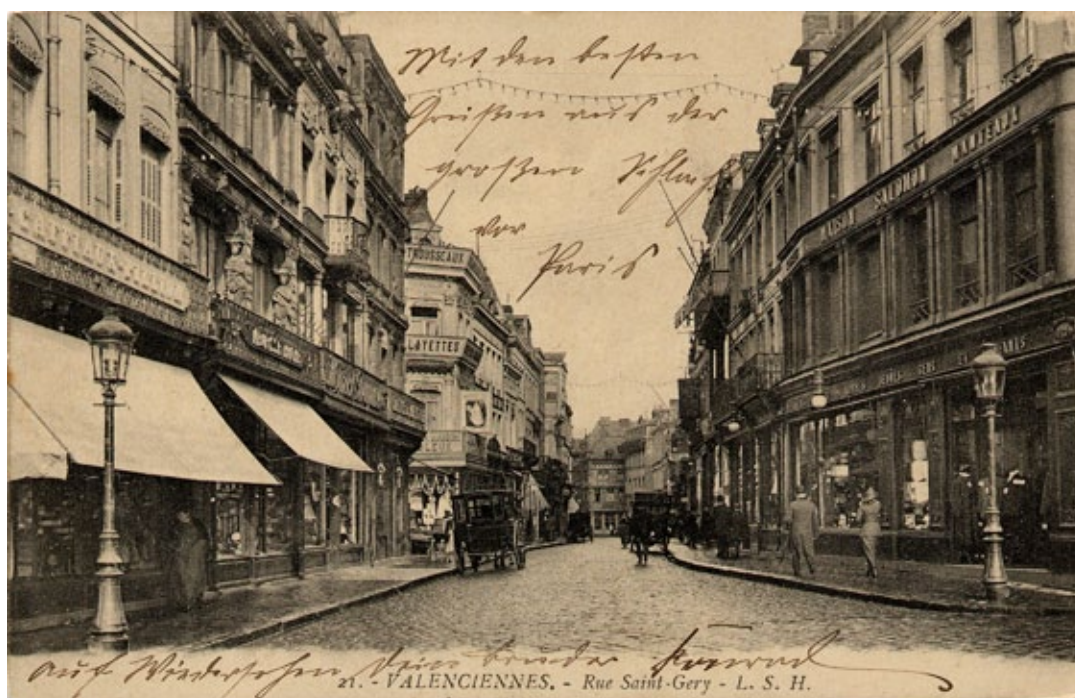 Mit den besten
Grüßen aus der
großen Schlacht
vor
Paris
TROUSSEAUX
LAYETTES
MAISON SALOMON
MANTEAUX
Auf Wiedersehen Dein Bruder Konrad
21. - VALENCIENNES. - Rue Saint-Gery - L. S. H.